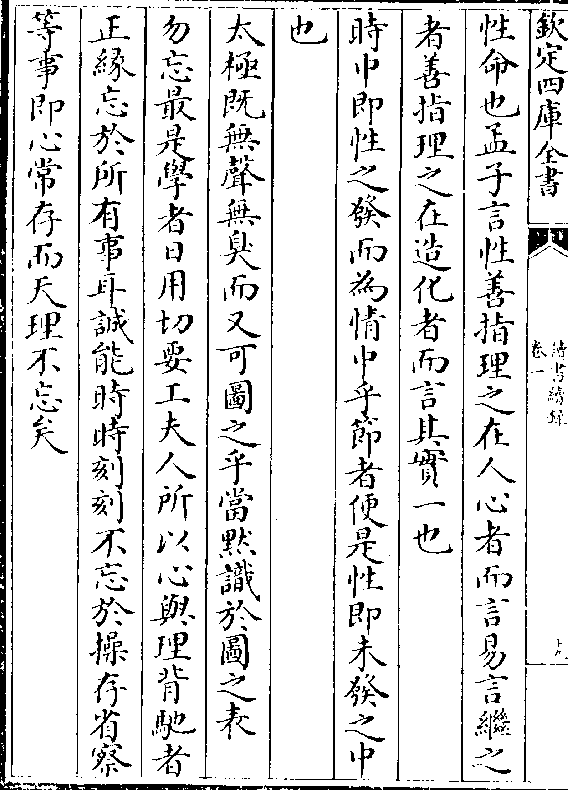 欽定四庫全書
讀書續錄
卷一
十九
性命也孟子言性善指理之在人心者而言易言繼之
者善指理之在造化者而言其實一也
時中即性之發而為情中乎節者便是性即未發之中
也
太極既無聲無臭而又可圖之乎當默識於圖之表
勿忘最是學者日用切要工夫人所以心與理背馳者
正緣忘於所有事耳誠能時時刻刻不忘於操存省察
等事即心常存而天理不忘矣